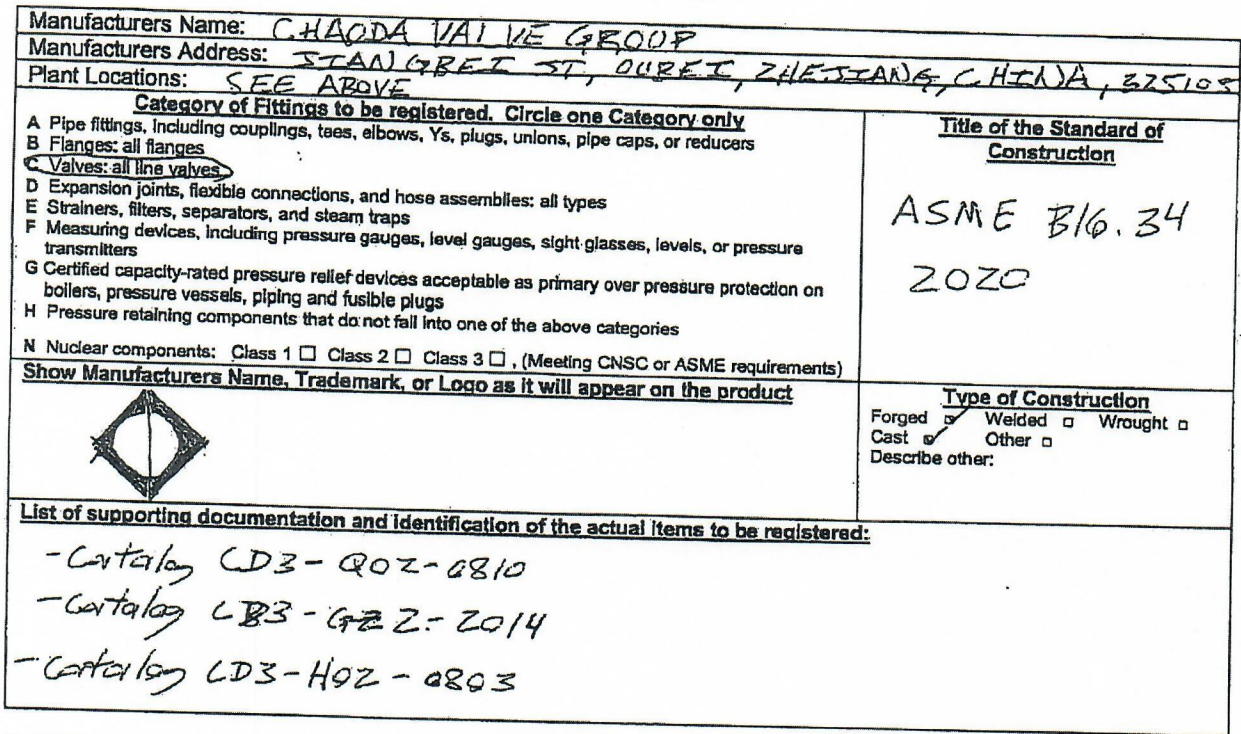 Manufacturers Name: CHAODA VALVE GROUP
Manufacturers Address: JIANGBEI ST, OUBEI, ZHEJIANG, CHINA, 325105
Plant Locations: SEE ABOVE
Category of Fittings to be registered. Circle one Category only
A Pipe fittings, including couplings, tees, elbows, Ys, plugs, unions, pipe caps, or reducers
B Flanges: all flanges
C Valves: all line valves
D Expansion joints, flexible connections, and hose assemblies: all types
E Strainers, filters, separators, and steam traps
F Measuring devices, including pressure gauges, level gauges, sight glasses, levels, or pressure
transmitters
G Certified capacity-rated pressure relief devices acceptable as primary over pressure protection on
boilers, pressure vessels, piping and fusible plugs
H Pressure retaining components that do not fall into one of the above categories
N Nuclear components: Class 1 ☐ Class 2 ☐ Class 3 ☐, (Meeting CNSC or ASME requirements)
Title of the Standard of
Construction
ASME B16.34
2020
Show Manufacturers Name, Trademark, or Logo as it will appear on the product
Type of Construction
Forged ☑ Welded ☐ Wrought ☐
Cast ☑ Other ☐
Describe other:
List of supporting documentation and identification of the actual items to be registered:
- Catalog CD3-Q02-0810
- Catalog CD3-GZ2-2014
- Catalog CD3-H02-0803